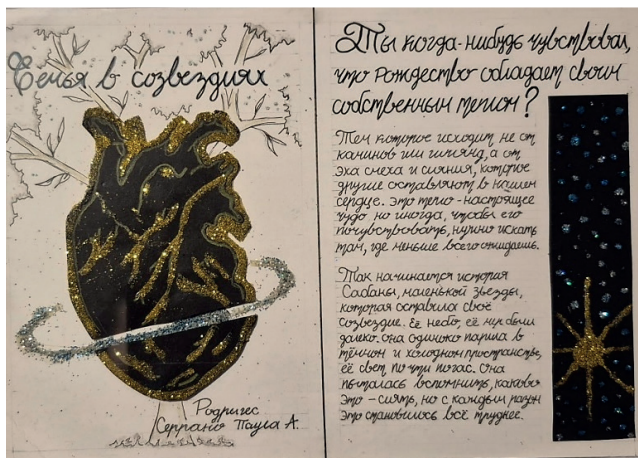 Семья в созвездиях
Родригес
Серрано Паула А.
Ты когда-нибудь чувствовал,
что рождество обладает своим
собственным теплом?
Тем которое исходит не от
каминов или гирлянд, а от
эха смеха и сияния, которое
другие оставляют в нашем
сердце. Это тепло - настоящее
чудо, но иногда, чтобы его
почувствовать, нужно искать
там, где меньше всего ожидаешь.
Так начинается история
Сабаны, маленькой звезды,
которая оставила своё
созвездие. Её небо, её были
далеко. Она одиноко парила в
тёмном и холодном пространстве,
её свет почти погас. Она
пыталась вспомнить, каково
это - сиять, но с каждым разом
это становилось всё труднее.